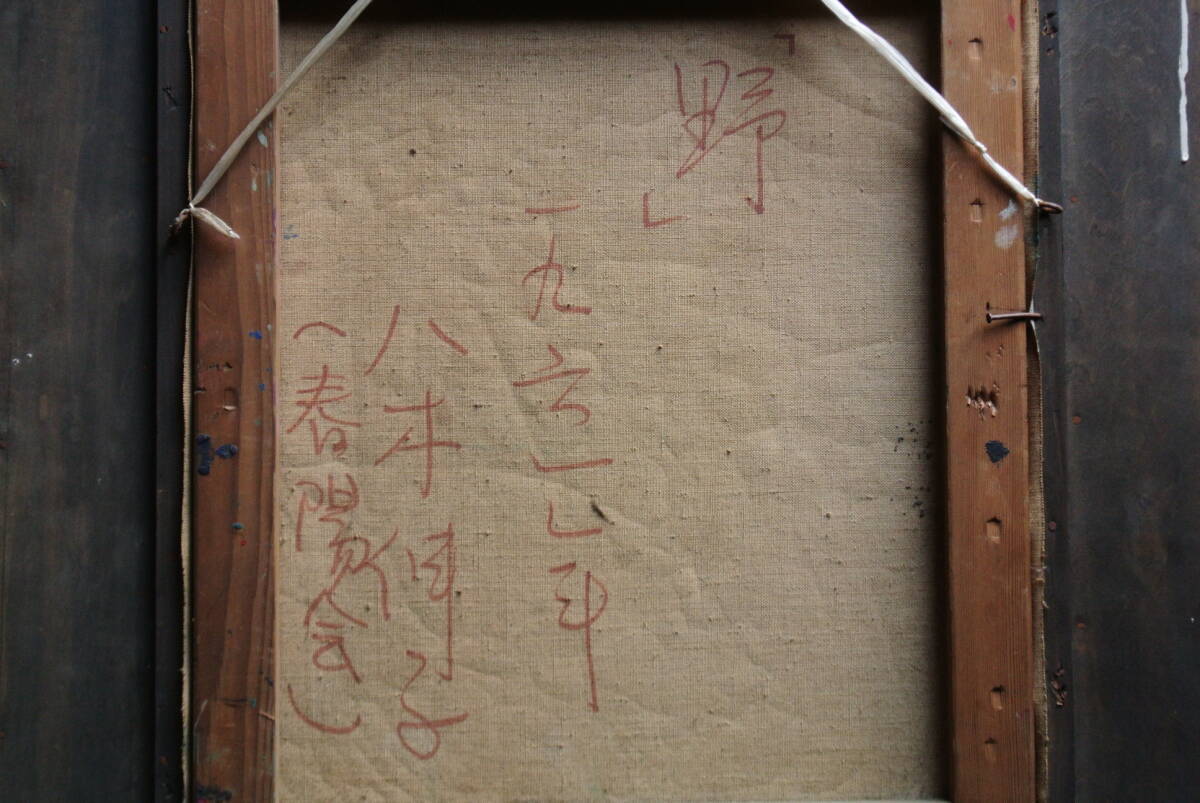 「野」
一九六七年
八木伸子
(春陽会)